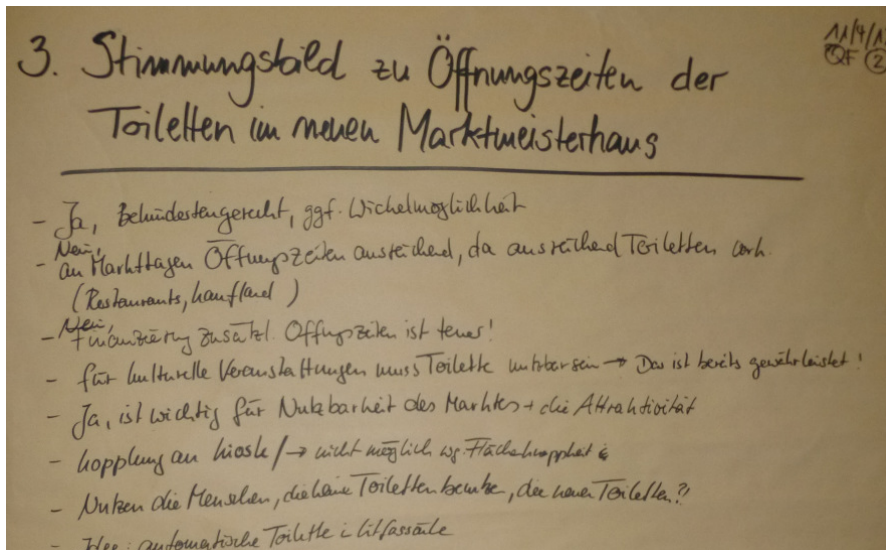 3. Stimmungsbild zu Öffnungszeiten der
11/4/1
QF 2
Toiletten im neuen Marktmeisterhaus
- Ja, Behindertengerecht, ggf. Wickelmöglichkeit
- Nein, an Markttagen Öffnungszeiten ausreichend, da ausreichend Toiletten vorh.
(Restaurants, Kaufland)
- Nein, Finanzierung zusätzl. Öffnungszeiten ist teuer!
- für kulturelle Veranstaltungen muss Toilette nutzbar sein → Das ist bereits gewährleistet!
- Ja, ist wichtig für Nutzbarkeit des Marktes + die Attraktivität
- Kopplung an Kiosk / → nicht möglich wg. Flächenknappheit
- Nutzen die Menschen, die keine Toiletten benutzen, die neuen Toiletten?!
- Idee: automatische Toilette i Litfassäule